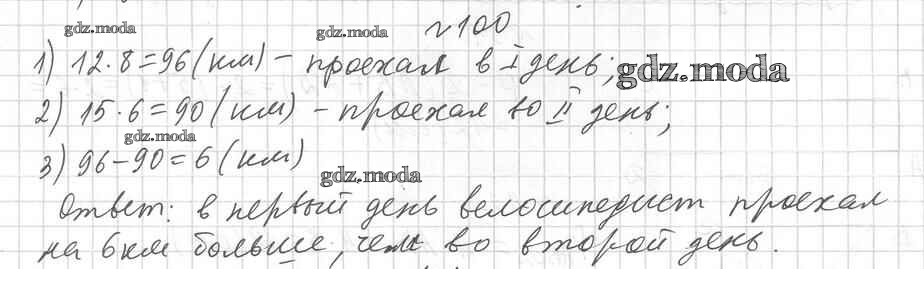 gdz.moda gdz.moda № 100
1) 12·8=96 (км) – проехал в I день; gdz.moda
2) 15·6=90 (км) – проехал во II день;
gdz.moda
3) 96–90=6 (км)
gdz.moda
Ответ: в первый день велосипедист проехал
на 6км больше, чем во второй день.